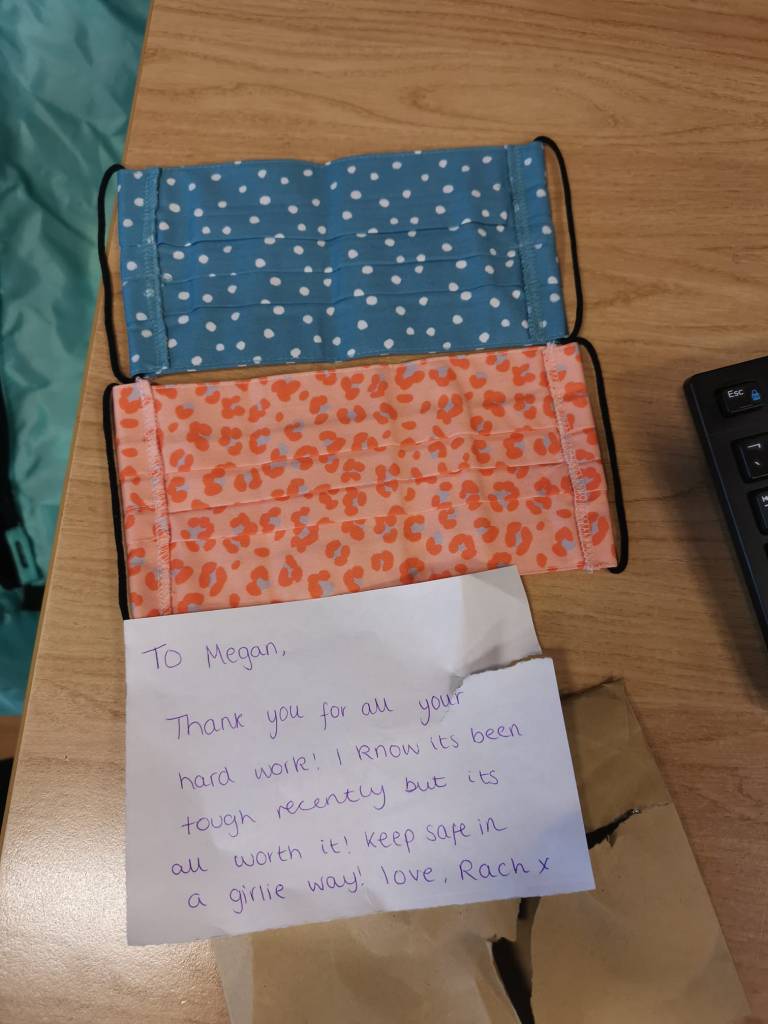 Esc
To Megan,
Thank you for all your
hard work! I know its been
tough recently but its
all worth it! Keep safe in
a girlie way! love, Rach x